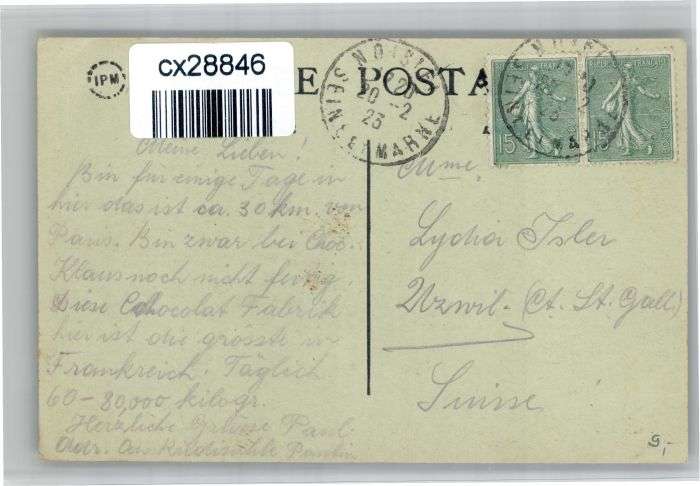 cx28846
IPM
E POSTA
NOISIEL
20-2
23
SEINE ET MARNE
15
15
Meine Lieben!
Bin für einige Tage in
hier das ist ca. 30 km. von
Paris. Bin zwar bei Choc.
Klaus noch nicht fertig.
Diese Chocolat Fabrik
hier ist die grösste in
Frankreich. Täglich
60-80,000 kilogr.
Herzliche Grüsse Paul.
Adr. Pantin
Mme.
Lydia Isler
Uzwil (Ct. St. Gall)
Suisse
9,-